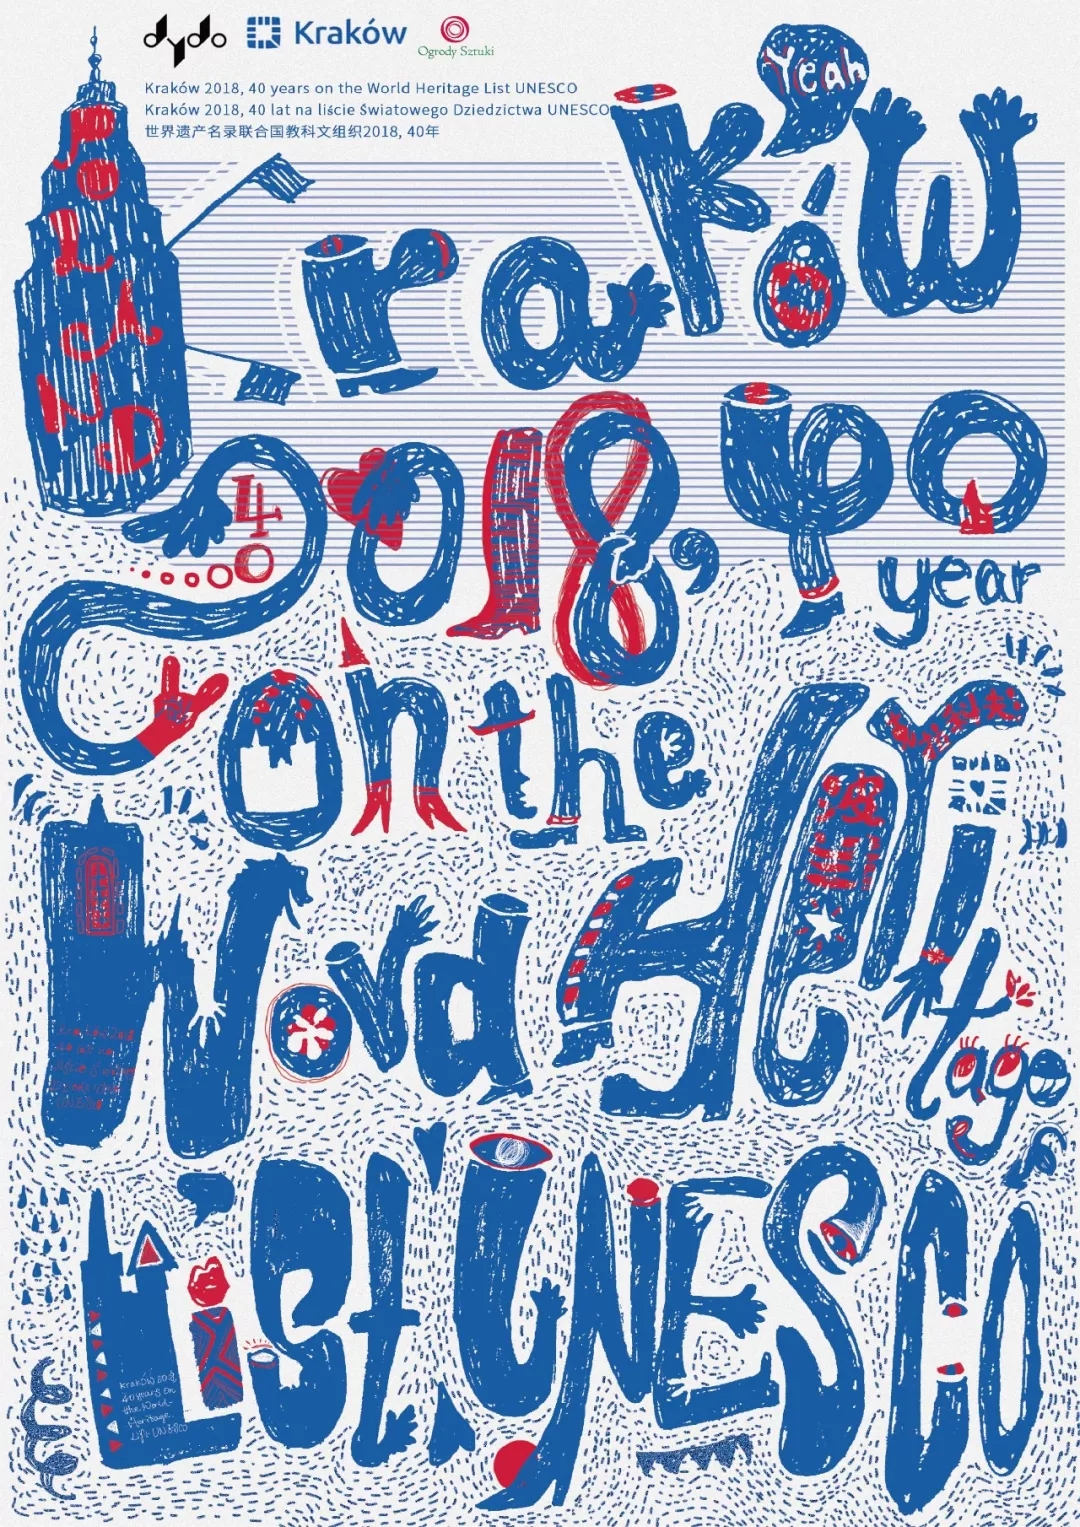 dydo
Kraków
Ogrody Sztuki
Kraków 2018, 40 years on the World Heritage List UNESCO
Kraków 2018, 40 lat na liście Światowego Dziedzictwa UNESCO
世界遗产名录联合国教科文组织2018, 40年
Yeah
Poland
Kraków
2018, 40
40
year
on the
World Heritage
List UNESCO
Kraków 2018,
40 years on
the World
Heritage
List UNESCO